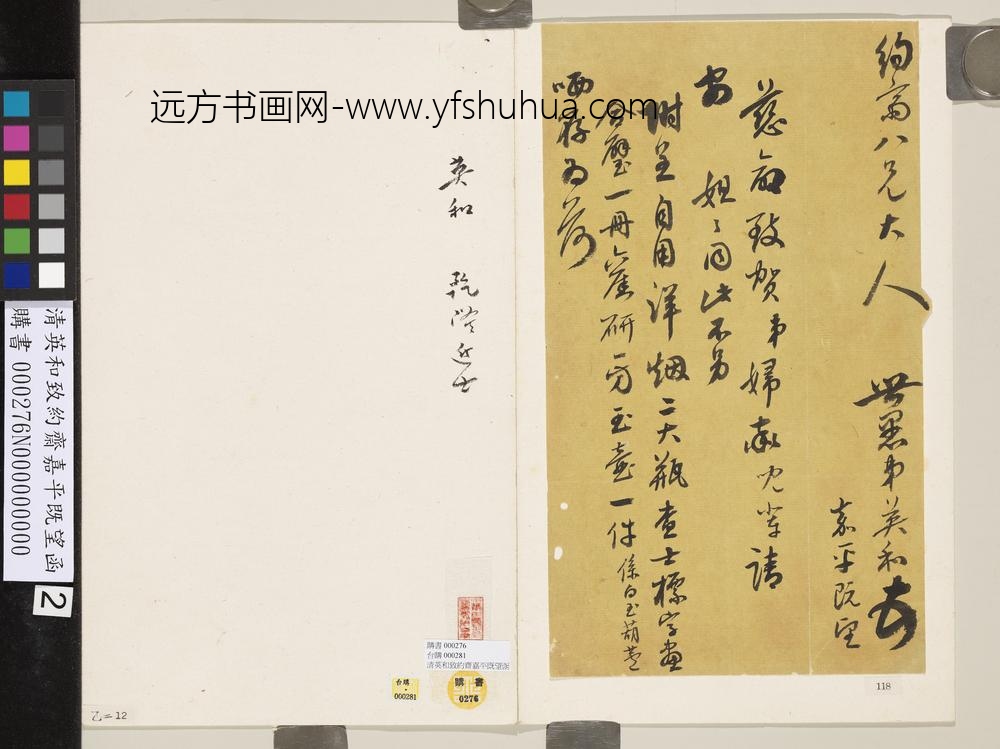 約齋八兄大人 世愚弟英和
嘉平既望
慈命致賀弟婦率兒輩請
安 姐〻同此不另
附呈自用洋烟二大瓶查士標字畫
合璧一冊舊研一方玉壺一件係白玉葫蘆
哂存為荷
英和 乾隆進士
远方书画网-www.yfshuhua.com
清英和致約齋嘉平既望函
購書 000276N000000000
2
購書 000276
台購 000281
清英和致約齋嘉平既望函
台購
000281
購書
0276
118
乙=12